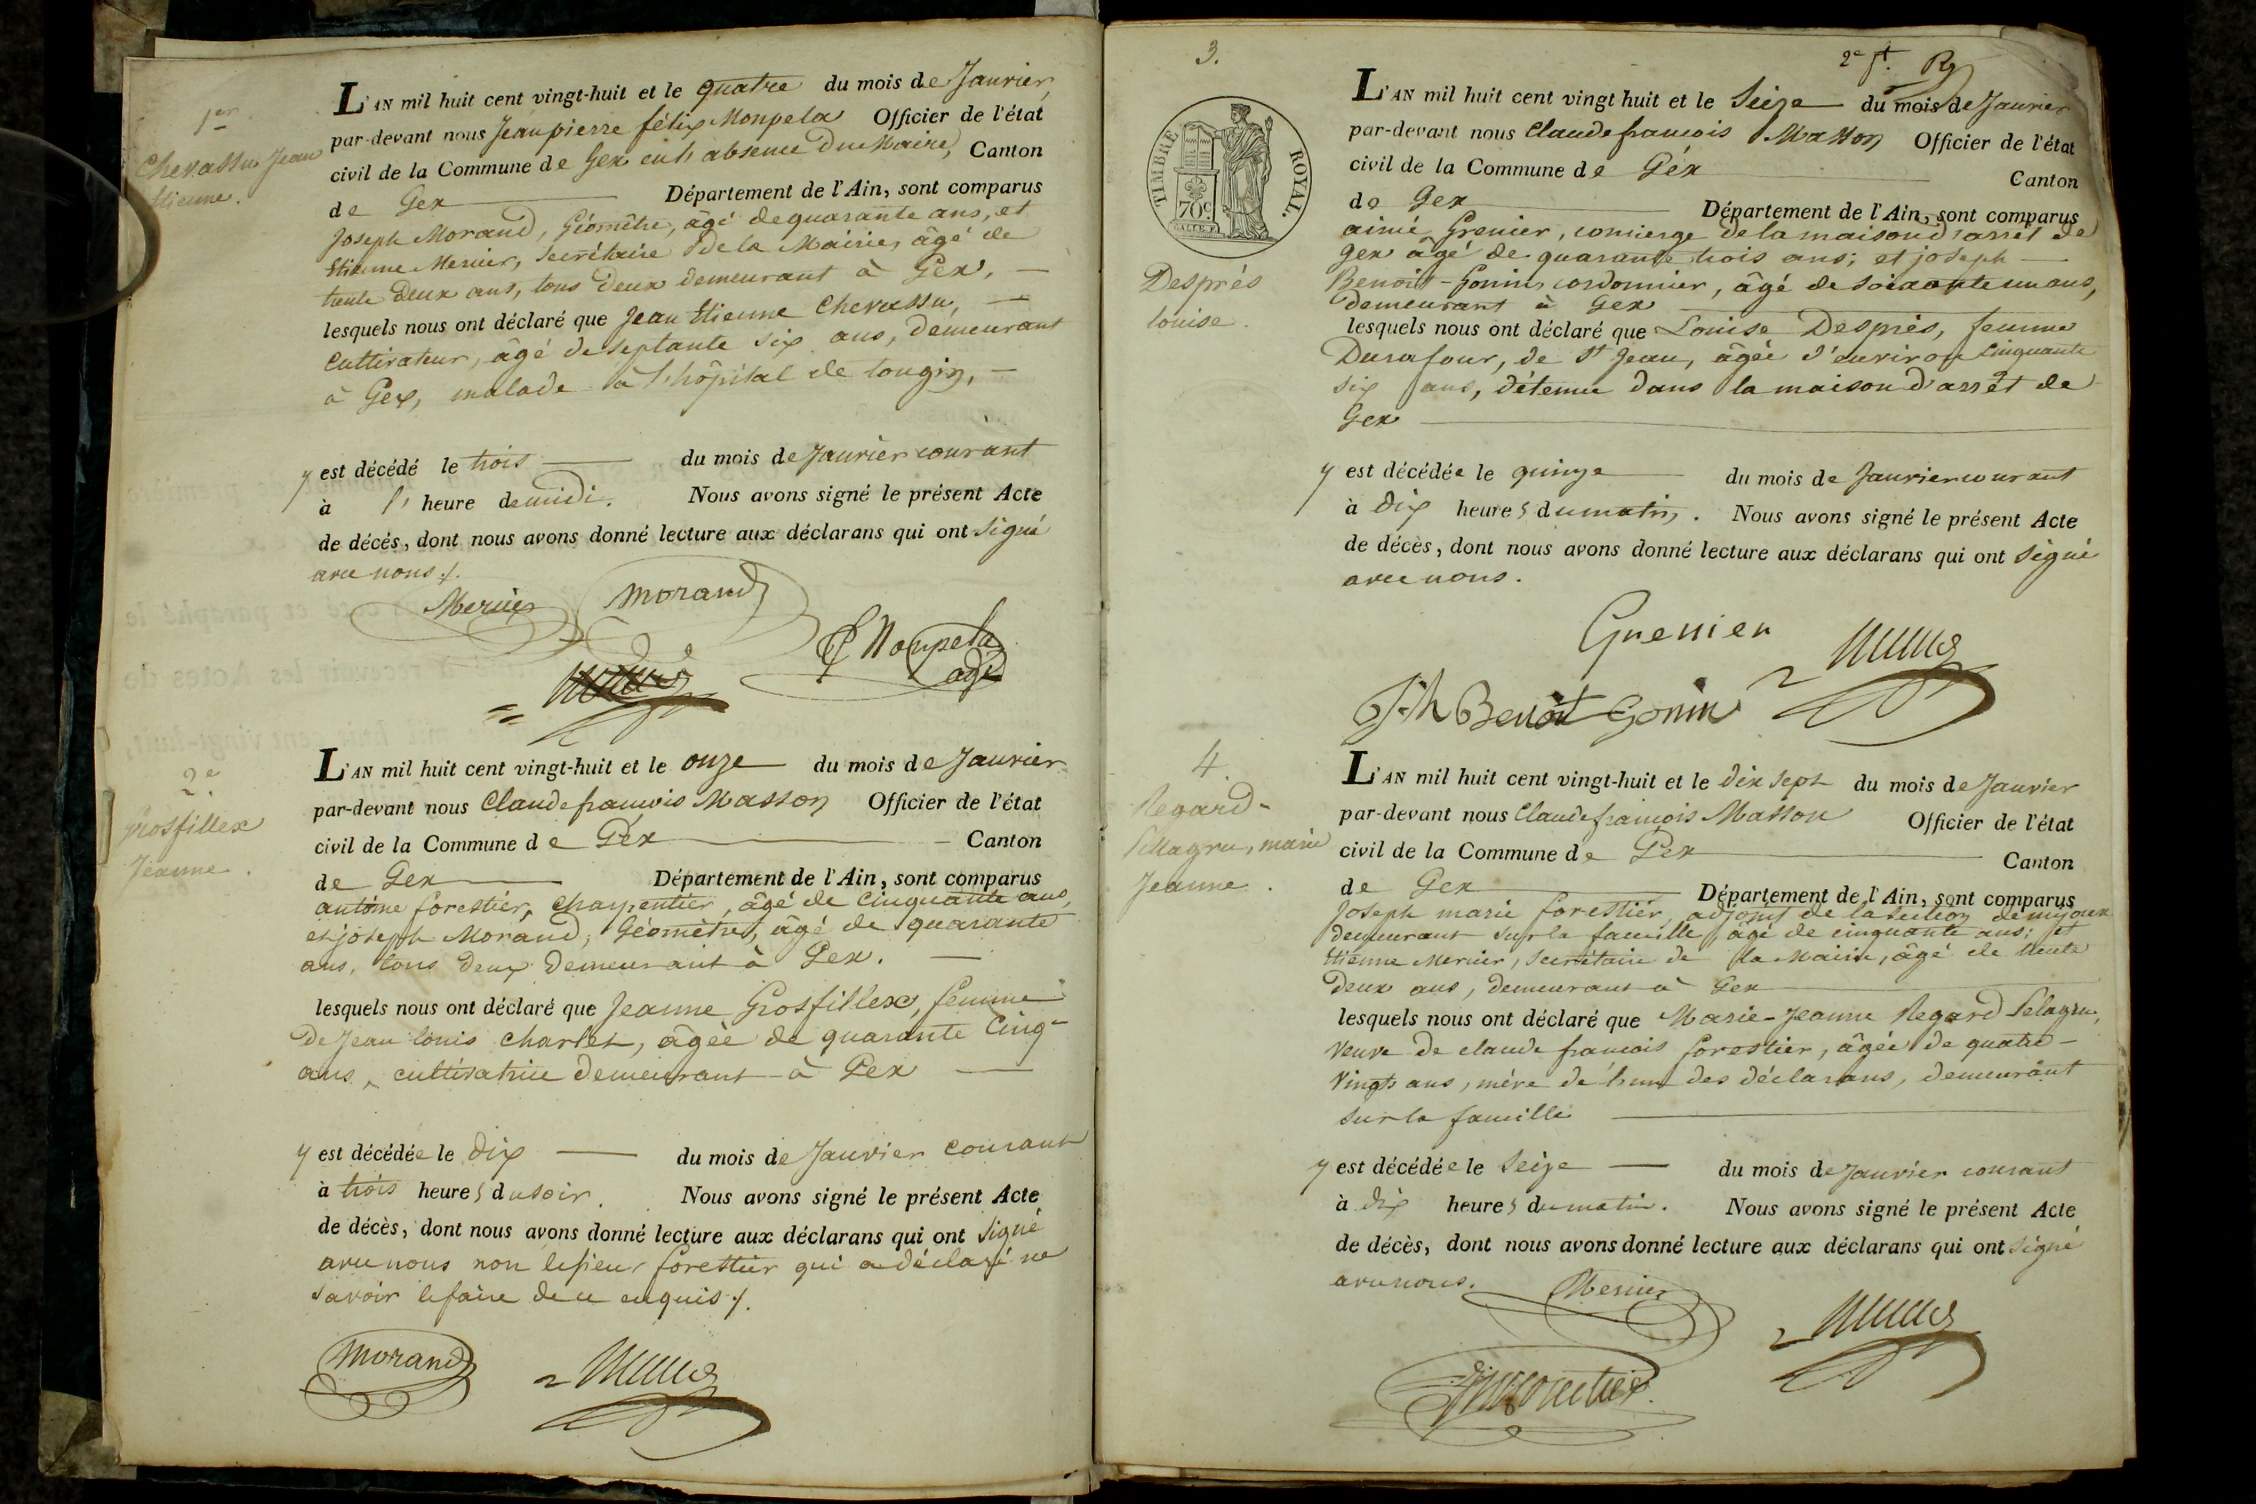 1er
Chevassu Jean
Etienne.
L'AN mil huit cent vingt-huit et le quatre du mois de Janvier,
par-devant nous Jean pierre félix Monpela Officier de l'état
civil de la Commune de Gex en l'absence du Maire, Canton
de Gex Département de l'Ain, sont comparus
Joseph Morand, Géomètre, âgé de quarante ans, et
Etienne Mercier, Secrétaire de la Mairie, âgé de
trente deux ans, tous deux demeurant à Gex.
lesquels nous ont déclaré que Jean Etienne Chevassu,
Cultivateur, âgé de septante six ans, demeurant
à Gex, malade à l'hôpital de tougin,
y est décédé le trois du mois de Janvier courant
à l' heure de midi. Nous avons signé le présent Acte
de décés, dont nous avons donné lecture aux déclarans qui ont signé
avec nous ./.
Mercier Morand
Monpela
adj.
2e
Grosfillex
Jeanne.
L'AN mil huit cent vingt-huit et le onze du mois de Janvier
par-devant nous Claude françois Masson Officier de l'état
civil de la Commune de Gex Canton
de Gex Département de l'Ain, sont comparus
antoine forestier, charpentier, âgé de cinquante ans,
et joseph Morand, Géomètre, âgé de quarante
ans, tous deux demeurant à Gex.
lesquels nous ont déclaré que Jeanne Grosfillex, femme
De Jean louis Charlet, âgée de quarante cinq
ans, cultivatrice demeurant à Gex
y est décédée le dix du mois de Janvier courant
à trois heures du soir. Nous avons signé le présent Acte
de décès, dont nous avons donné lecture aux déclarans qui ont signé
avec nous non le sieur forestier qui a déclaré ne
savoir le faire de ce enquis ./.
Morand
3.
2e ft.
TIMBRE ROYAL.
70c
Desprès
louise.
L'AN mil huit cent vingt huit et le Seize du mois de Janvier
par-devant nous Claude francois Masson Officier de l'état
civil de la Commune de Gex Canton
de Gex Département de l'Ain, sont comparus
aimé Grenier, concierge de la maison d'arrêt de
Gex âgé de quarante trois ans; et joseph
Benoit-Gonin cordonnier, âgé de soixante un ans,
demeurant à Gex
lesquels nous ont déclaré que Louise Després, femme
Durafour, de St Jean, âgée d'environ cinquante
six ans, détenue dans la maison d'arrêt de
Gex
y est décédée le quinze du mois de Janvier courant
à dix heures du matin. Nous avons signé le présent Acte
de décès, dont nous avons donné lecture aux déclarans qui ont signé
avec nous.
Grenier
Jh Benoit Gonin
4.
Regard-
Pellagru, marie
Jeanne.
L'AN mil huit cent vingt-huit et le dix sept du mois de Janvier
par-devant nous Claude françois Masson Officier de l'état
civil de la Commune de Gex Canton
de Gex Département de l'Ain, sont comparus
Joseph marie forestier, adjoint de la section de mijoux
demeurant sur la faucille, âgé de cinquante ans; et
Etienne Mercier, secrétaire de la Mairie, âgé de trente
deux ans, demeurant à Gex
lesquels nous ont déclaré que Marie-Jeanne Regard Pelagru,
veuve de claude francois forestier, âgée de quatre-
vingts ans, mère de l'un des déclarans, demeurant
sur la faucille
y est décédée le seize du mois de Janvier courant
à dix heures du matin. Nous avons signé le présent Acte
de décès, dont nous avons donné lecture aux déclarans qui ont signé
avec nous.
Mercier